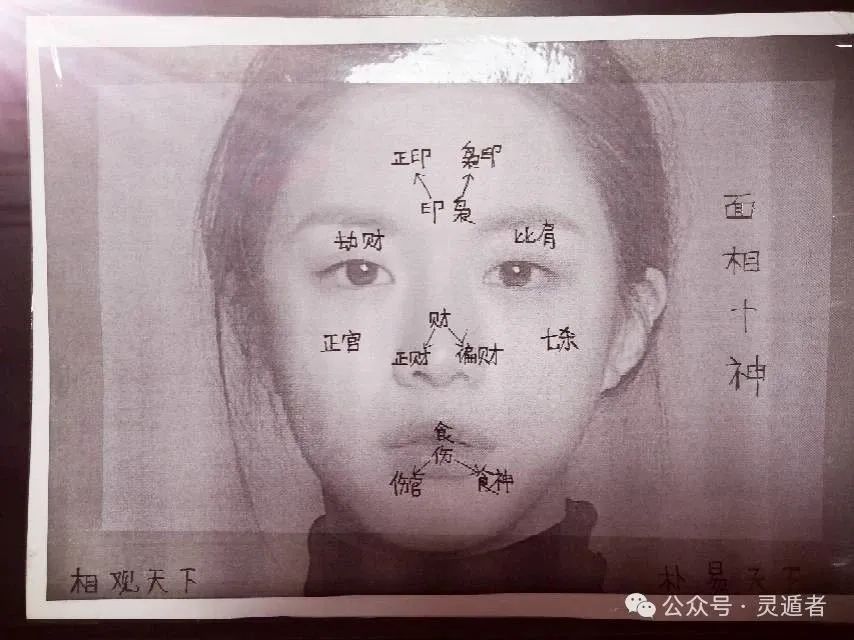 正印 枭印
印 枭
劫财 比肩
财
正官 正财 偏财 七杀
食
伤
伤官 食神
面相十神
相观天下
朴易天下
公众号·灵遁者